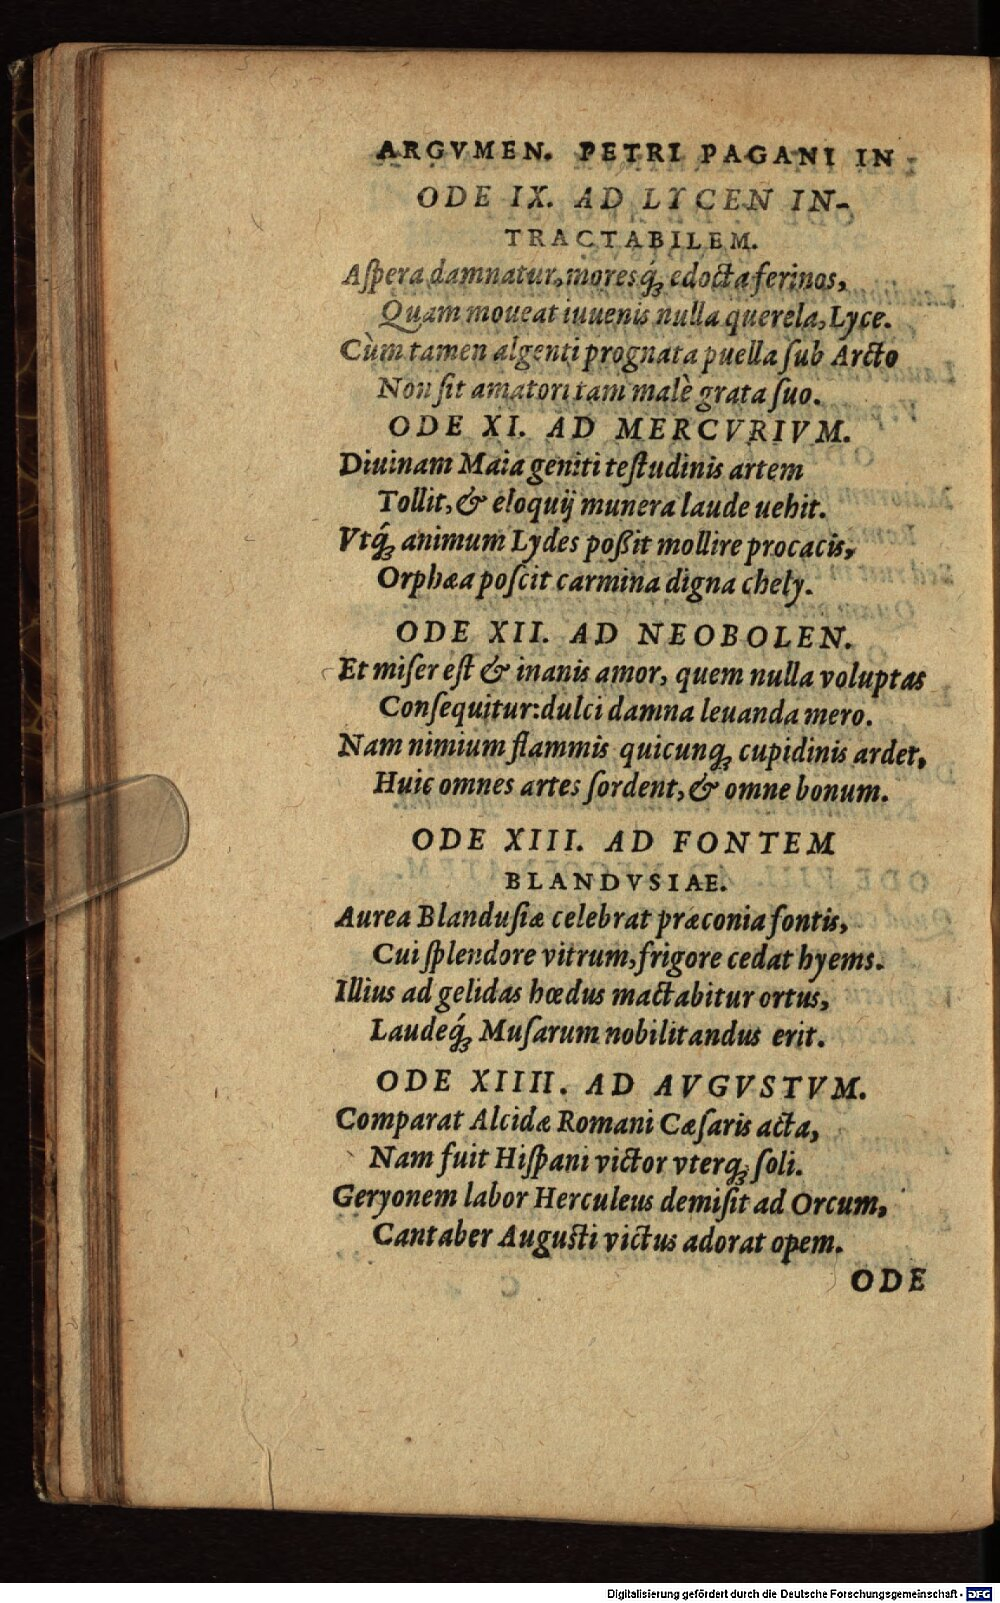 ARGVMEN. PETRI PAGANI IN
ODE IX. AD LYCEN IN-
TRACTABILEM.
Aſpera damnatur, moresq́ꝫ edocta ferinos,
Quam moueat iuuenis nulla querela, Lyce.
Cùm tamen algenti prognata puella ſub Arcto
Non ſit amatori tam malè grata ſuo.
ODE XI. AD MERCVRIVM.
Diuinam Maia geniti teſtudinis artem
Tollit, & eloquij munera laude uehit.
Vtq́ꝫ animum Lydes poßit mollire procacis,
Orphæa poſcit carmina digna chely.
ODE XII. AD NEOBOLEN.
Et miſer eſt & inanis amor, quem nulla voluptas
Conſequitur: dulci damna leuanda mero.
Nam nimium flammis quicunqꝫ cupidinis ardet,
Huic omnes artes ſordent, & omne bonum.
ODE XIII. AD FONTEM
BLANDVSIAE.
Aurea Blanduſiæ celebrat præconia fontis,
Cui ſplendore vitrum, frigore cedat hyems.
Illius ad gelidas hœdus mactabitur ortus,
Laudeq́ꝫ Muſarum nobilitandus erit.
ODE XIIII. AD AVGVSTVM.
Comparat Alcidæ Romani Cæſaris acta,
Nam fuit Hiſpani victor vterqꝫ ſoli.
Geryonem labor Herculeus demiſit ad Orcum,
Cantaber Auguſti victus adorat opem.
ODE
Digitalisierung gefördert durch die Deutsche Forschungsgemeinschaft - DFG